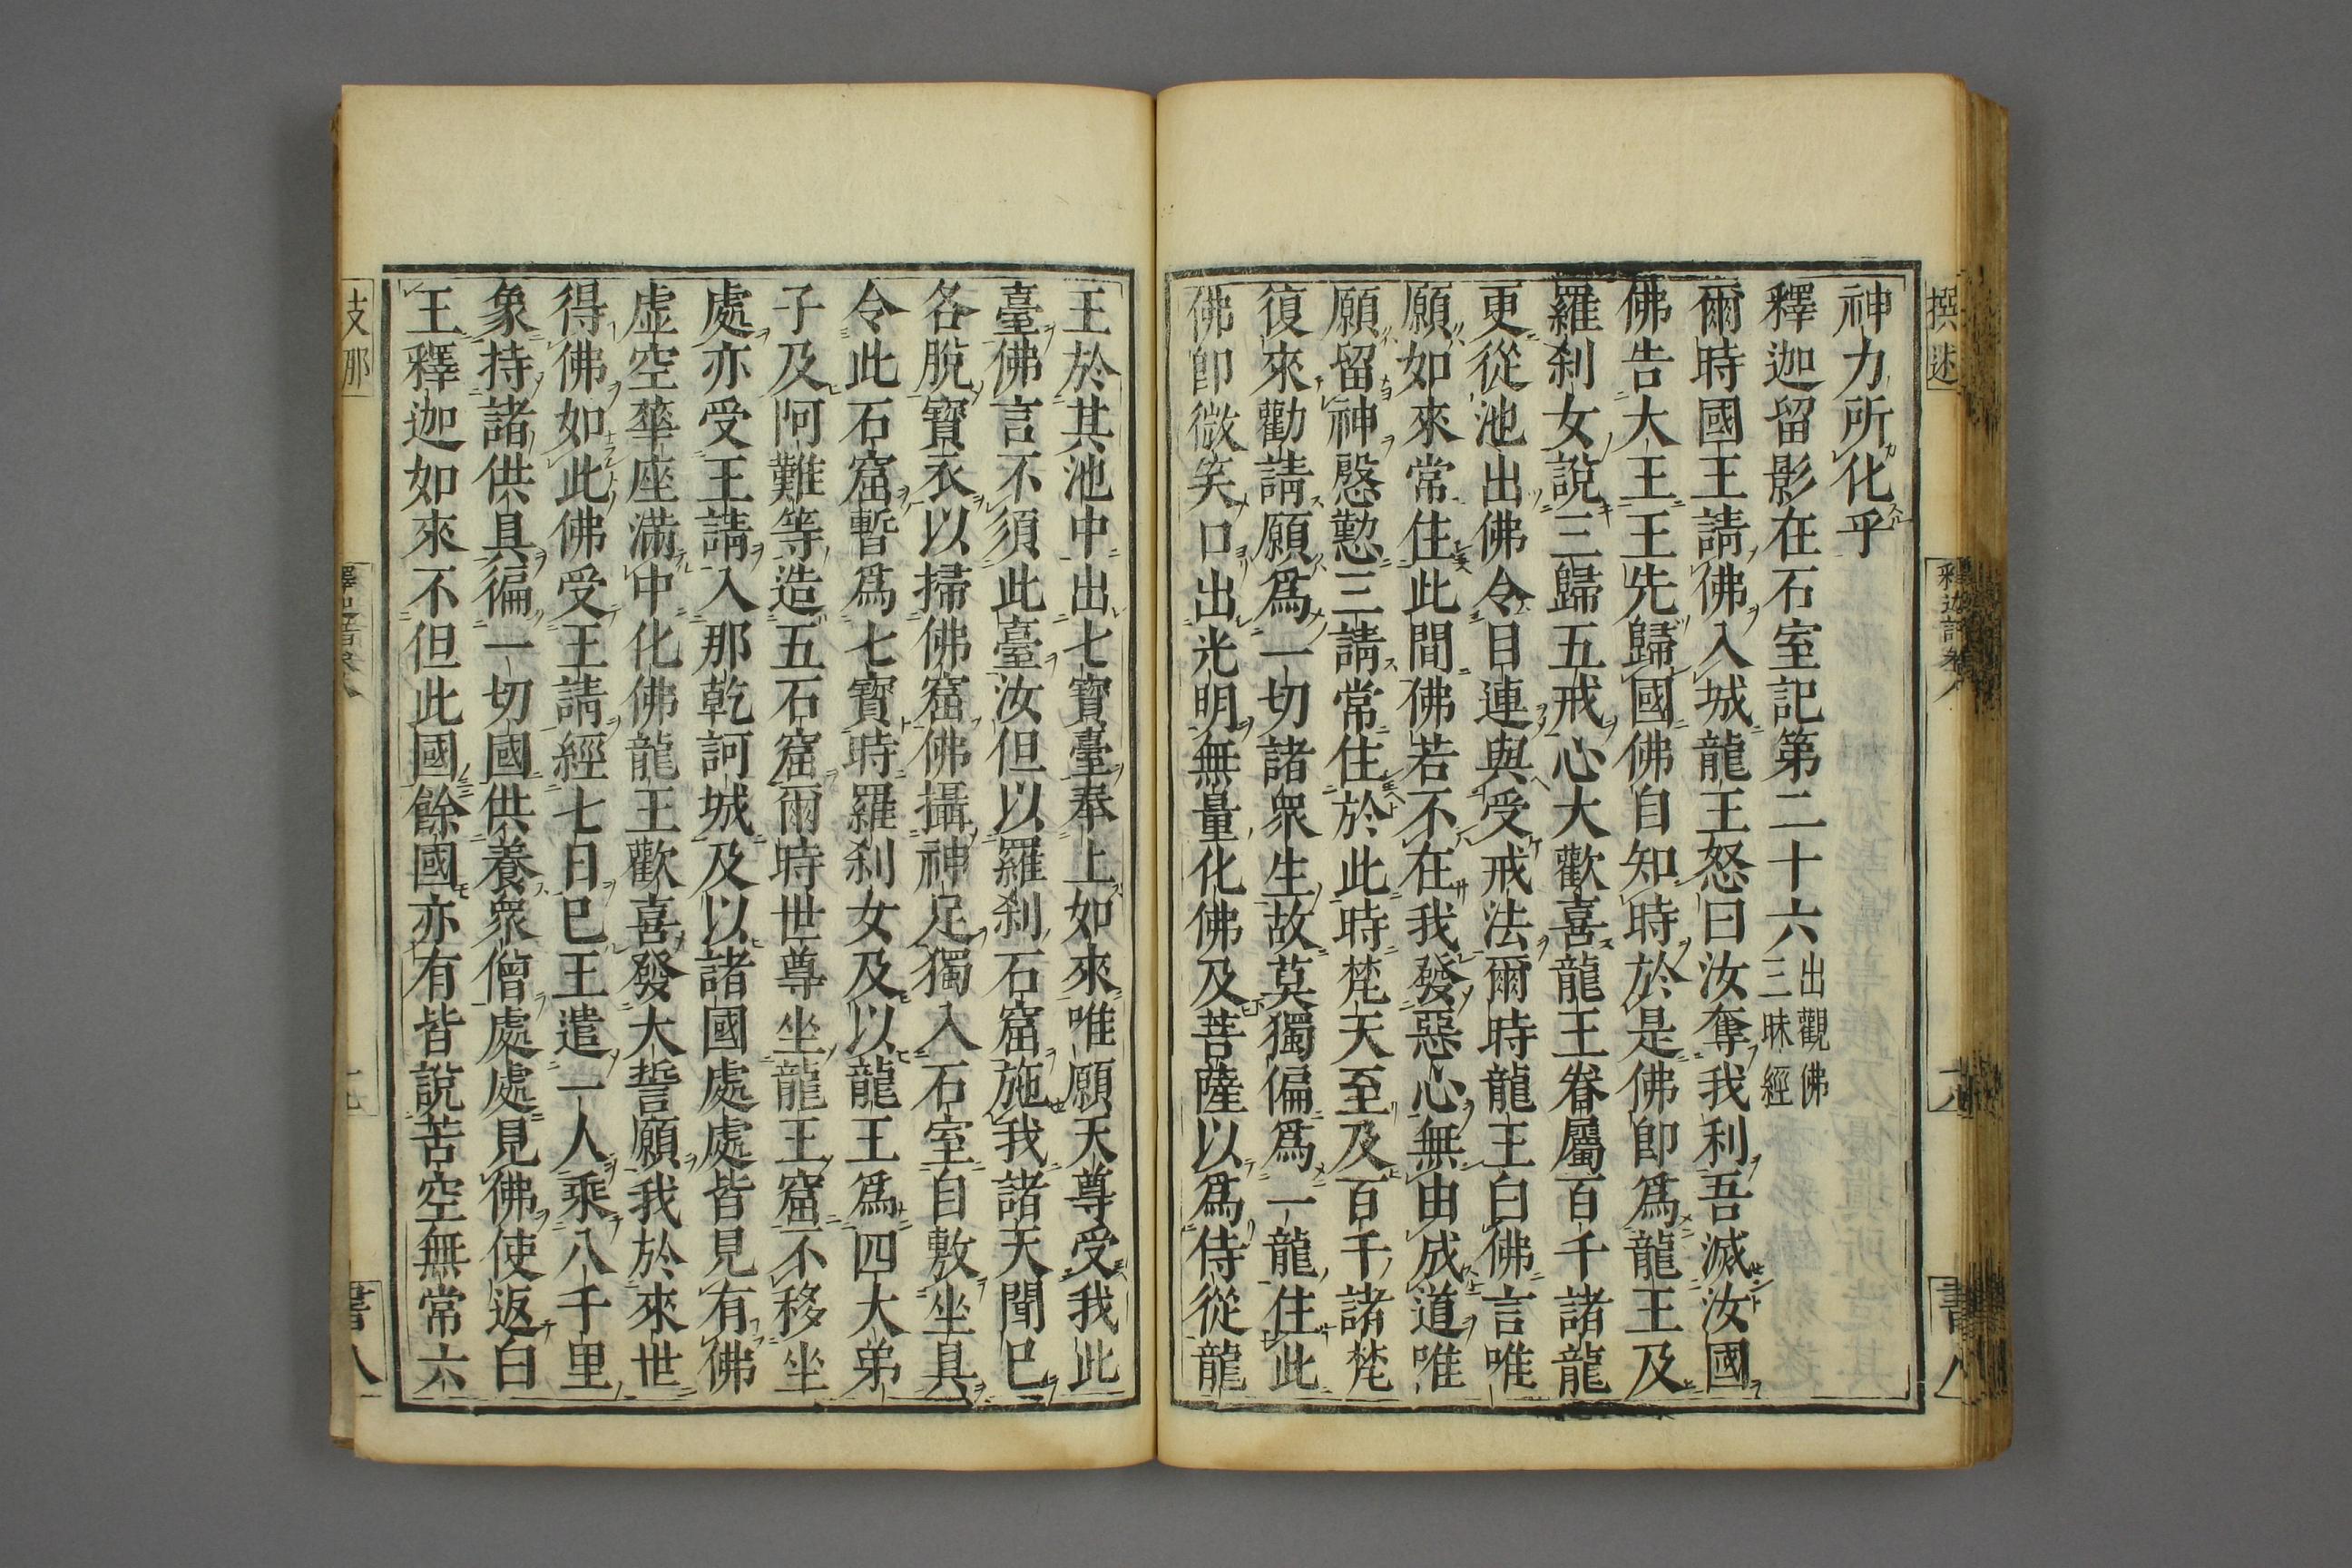 撰述
釋迦譜卷八
書八
神力所化乎
釋迦留影在石室記第二十六出觀佛三昧經
爾時國王請佛入城龍王怒曰汝奪我利吾滅汝國
佛告大王王先歸國佛自知時於是佛即爲龍王及
羅刹女說三歸五戒心大歡喜龍王眷屬百千諸龍
更從池出佛令目連與受戒法爾時龍王白佛言唯
願如來常住此間佛若不在我發惡心無由成道唯
願留神慇懃三請常住於此時梵天至及百千諸梵
復來勸請願爲一切諸衆生故莫獨偏爲一龍住此
佛即微笑口出光明無量化佛及菩薩以爲侍從龍
王於其池中出七寶臺奉上如來唯願天尊受我此
臺佛言不須此臺汝但以羅刹石窟施我諸天聞已
各脫寶衣以掃佛窟佛攝神足獨入石室自敷坐具
令此石窟暫爲七寶時羅刹女及以龍王爲四大弟
子及阿難等造五石窟爾時世尊坐龍王窟不移坐
處亦受王請入那乾訶城及以諸國處處皆見有佛
虛空華座滿中化佛龍王歡喜發大誓願我於來世
得佛如此佛受王請經七日已王遣一人乘八千里
象持諸供具徧一切國供養衆僧處處見佛使返白
王釋迦如來不但此國餘國亦有皆說苦空無常六
支那
書八